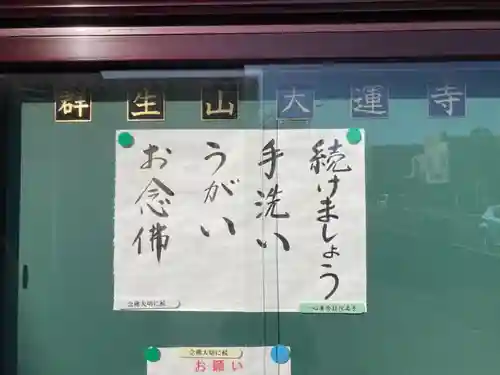 群生山大運寺
続けましょう
手洗い
うがい
お念佛
お願い